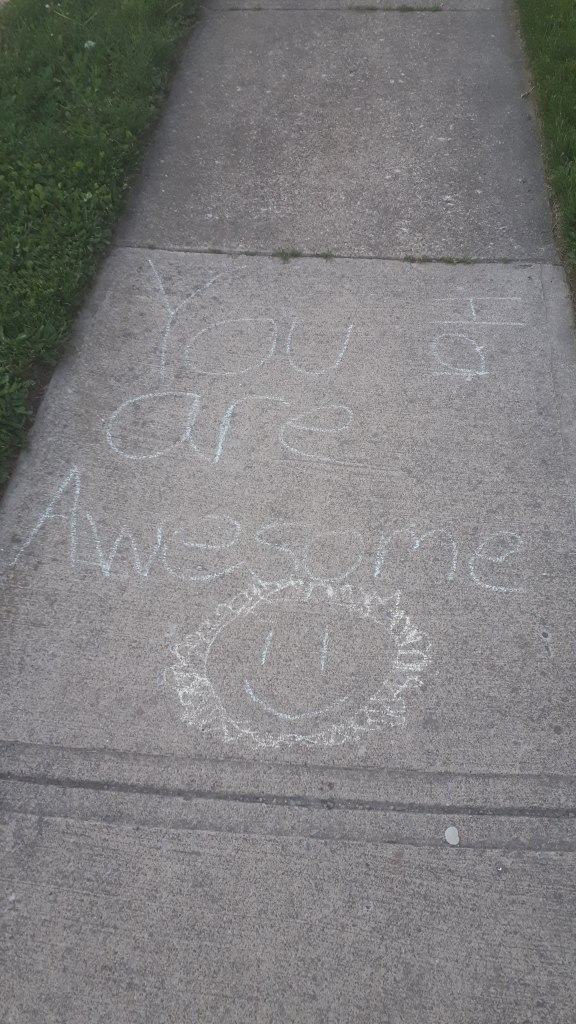 You
are
Awesome